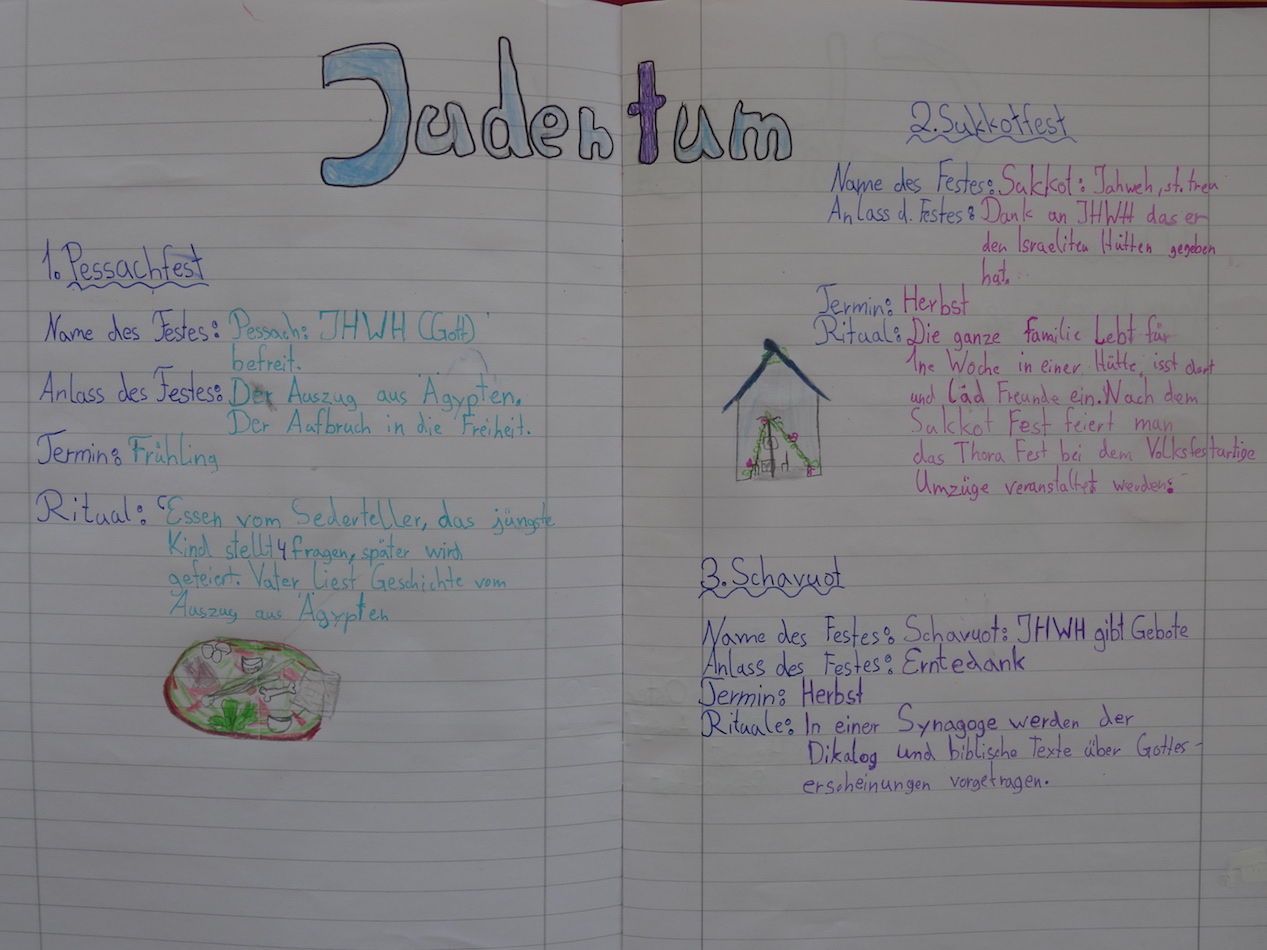 Judentum
1. Pessachfest
Name des Festes: Pessach: JHWH (Gott)
befreit.
Anlass des Festes: Der Auszug aus Ägypten.
Der Aufbruch in die Freiheit.
Termin: Frühling
Ritual: Essen vom Sederteller, das jüngste
Kind stellt 4 fragen, später wird
gefeiert. Vater liest Geschichte vom
Auszug aus Ägypten
2. Sukkotfest
Name des Festes: Sukkot: Jahweh, st. treu
Anlass d. Festes: Dank an JHWH das er
den Israeliten Hütten gegeben
hat.
Termin: Herbst
Ritual: Die ganze Familie Lebt für
1ne Woche in einer Hütte, isst dort
und läd Freunde ein. Nach dem
Sukkot Fest feiert man
das Thora Fest bei dem Volksfestartige
Umzüge veranstaltet werden.
3. Schavuot
Name des Festes: Schavuot: JHWH gibt Gebote
Anlass des Festes: Erntedank
Termin: Herbst
Rituale: In einer Synagoge werden der
Dikalog und biblische Texte über Gottes-
erscheinungen vorgetragen.